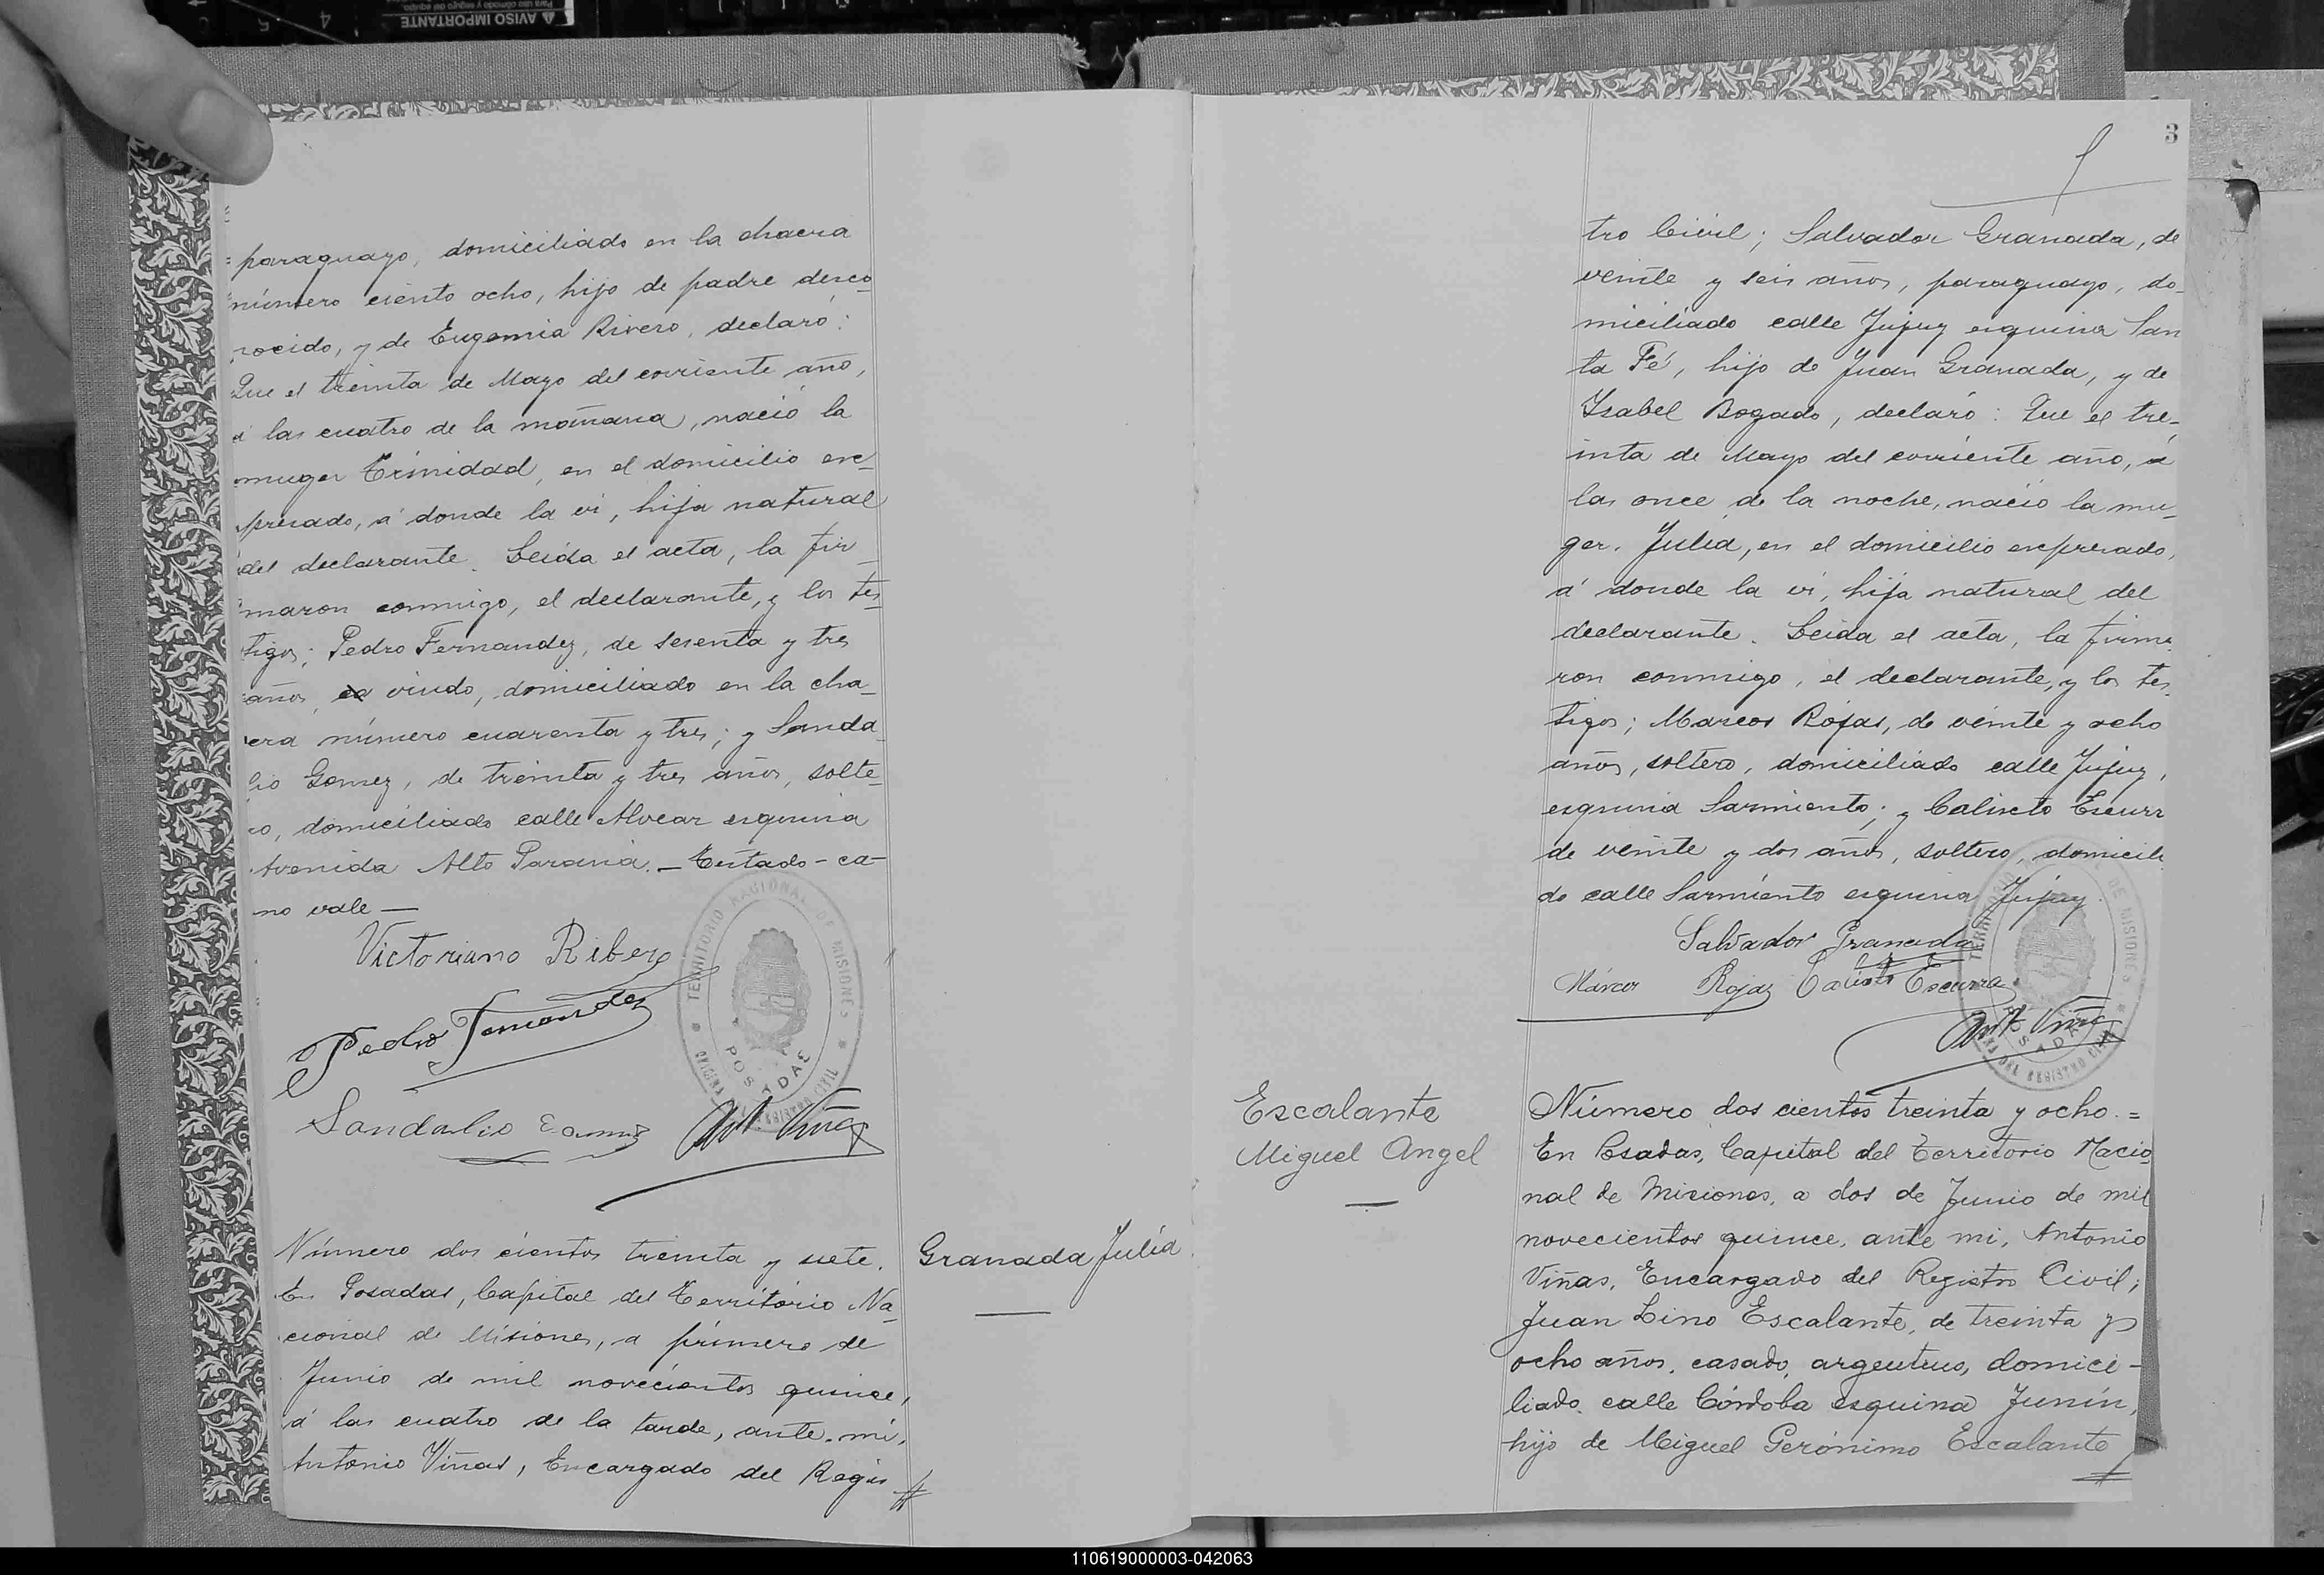 AVISO IMPORTANTE
paraguayo, domiciliado en la chacra
número ciento ocho, hijo de padre desco-
nocido, y de Eugemia Rivero, declaró:
Que el treinta de Mayo del corriente año,
á las cuatro de la mañana, nació la
muger Trinidad, en el domicilio ex-
presado, á donde la vi, hija natural
del declarante. Leida el acta, la fir-
maron conmigo, el declarante, y los tes-
tigos; Pedro Fernandez, de sesenta y tres
años, ca viudo, domiciliado en la cha-
cra número cuarenta y tres; y Sanda-
lio Gomez, de treinta y tres años, solte-
ro, domiciliado calle Alvear esquina
Avenida Alto Paraná. — Testado - ca -
no vale —
Victoriano Ribero
Pedro Fernandez
Sandalio Gomez Ant. Viñas
TERRITORIO NACIONAL DE MISIONES
OFICINA DEL REGISTRO CIVIL
POSADAS
Número dos cientos treinta y siete.
Granada Julia
En Posadas, Capital del Territorio Na-
cional de Misiones, a primero de
Junio de mil novecientos quince,
á las cuatro de la tarde, ante mi,
Antonio Viñas, Encargado del Regis
3
tro Civil; Salvador Granada, de
veinte y seis años, paraguayo, do-
miciliado calle Jujuy esquina San
ta Fé, hijo de Juan Granada, y de
Ysabel Bogado, declaró: Que el tre-
inta de Mayo del corriente año, á
las once de la noche, nació la mu-
ger. Julia, en el domicilio expresado,
á donde la vi, hija natural del
declarante. Leida el acta, la firma
ron conmigo, el declarante, y los tes
tigos; Marcos Rojas, de veinte y ocho
años, soltero, domiciliado calle Jujuy,
esquina Sarmiento; y Calixto Escurr
de veinte y dos años, soltero, domicili
do calle Sarmiento esquina Jujuy.
Salvador Granada
Márcos Rojas Calisto Escurra
Ant. Viñas
TERRITORIO NACIONAL DE MISIONES
OFICINA DEL REGISTRO CIVIL
POSADAS
Escalante
Miguel Angel
Número dos cientos treinta y ocho. =
En Posadas, Capital del Territorio Nacio
nal de Misiones, a dos de Junio de mil
novecientos quince, ante mi, Antonio
Viñas, Encargado del Registro Civil;
Juan Lino Escalante, de treinta y
ocho años, casado, argentino, domici-
liado calle Córdoba esquina Junín,
hijo de Miguel Gerónimo Escalante
110619000003-042063